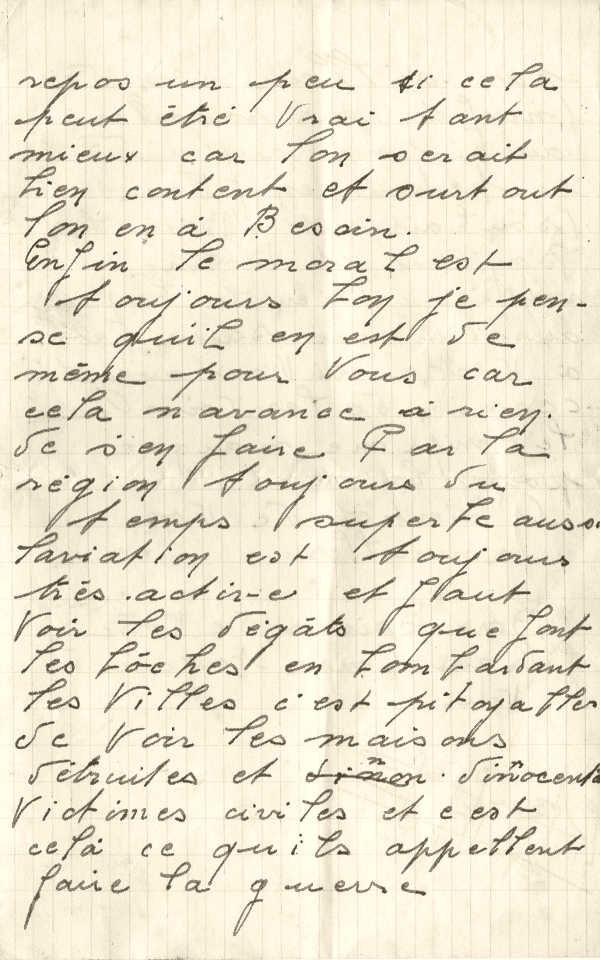 repos un peu si cela
peut être vrai tant
mieux car lon serait
bien content et surtout
lon en à Besoin.
Enfin le moral est
toujours bon je pen-
se qu'il en est de
même pour Vous car
cela n'avance à rien.
de s'en faire Par la
région toujours du
temps superbe aussi
laviation est toujours
très active et faut
Voir les dégâts que font
les bôches en bombardant
les Villes c'est pitoyables
de Voir les maisons
détruites et dinnocents
Victimes civiles et c'est
celà ce qu'ils appellent
faire la guerre